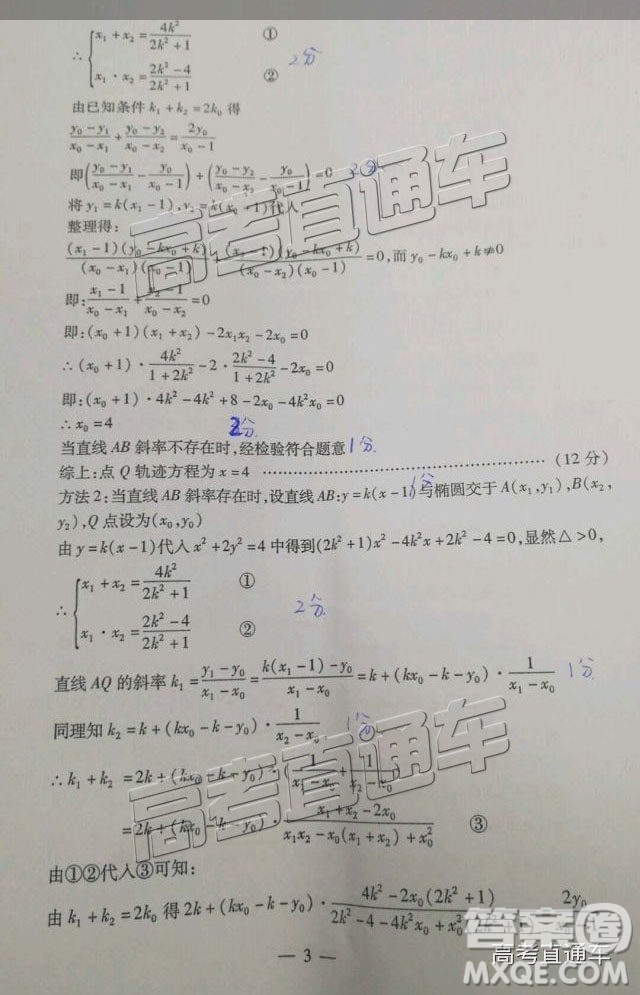 ∴ { x₁ + x₂ = 4k²/(2k² + 1) ① 2分
x₁ · x₂ = (2k² - 4)/(2k² + 1) ②
由已知条件 k₁ + k₂ = 2k₀ 得
(y₀ - y₁)/(x₀ - x₁) + (y₀ - y₂)/(x₀ - x₂) = 2y₀/(x₀ - 1)
即((y₀ - y₁)/(x₀ - x₁) - y₀/(x₀ - 1)) + ((y₀ - y₂)/(x₀ - x₂) - y₀/(x₀ - 1)) = 0
将 y₁ = k(x₁ - 1), y₂ = k(x₂ - 1)代入
整理得:
(x₁ - 1)(y₀ - kx₀ + k)/((x₀ - x₁)(x₀ - 1)) + (x₂ - 1)(y₀ - kx₀ + k)/((x₀ - x₂)(x₀ - 1)) = 0,而 y₀ - kx₀ + k ≠ 0
即: (x₁ - 1)/(x₀ - x₁) + (x₂ - 1)/(x₀ - x₂) = 0
即:(x₀ + 1)(x₁ + x₂) - 2x₁x₂ - 2x₀ = 0
∴ (x₀ + 1) · 4k²/(1 + 2k²) - 2 · (2k² - 4)/(1 + 2k²) - 2x₀ = 0
即:(x₀ + 1) · 4k² - 4k² + 8 - 2x₀ - 4k²x₀ = 0
∴ x₀ = 4 2分
当直线 AB 斜率不存在时,经检验符合题意 1分
综上:点 Q 轨迹方程为 x = 4 ……………………………… (12 分)
方法 2:当直线 AB 斜率存在时,设直线 AB: y = k(x - 1) 1分 与椭圆交于 A(x₁, y₁), B(x₂,
y₂), Q 点设为(x₀, y₀)
由 y = k(x - 1)代入 x² + 2y² = 4 中得到(2k² + 1)x² - 4k²x + 2k² - 4 = 0,显然 △ > 0,
∴ { x₁ + x₂ = 4k²/(2k² + 1) ① 2分
x₁ · x₂ = (2k² - 4)/(2k² + 1) ②
直线 AQ 的斜率 k₁ = (y₁ - y₀)/(x₁ - x₀) = (k(x₁ - 1) - y₀)/(x₁ - x₀) = k + (kx₀ - k - y₀) · 1/(x₁ - x₀) 1分
同理知 k₂ = k + (kx₀ - k - y₀) · 1/(x₂ - x₀) 1分
∴ k₁ + k₂ = 2k + (kx₀ - k - y₀) · (1/(x₁ - x₀) + 1/(x₂ - x₀))
= 2k + (kx₀ - k - y₀) · (x₁ + x₂ - 2x₀)/(x₁x₂ - x₀(x₁ + x₂) + x₀²) ③
由①②代入③可知:
由 k₁ + k₂ = 2k₀ 得 2k + (kx₀ - k - y₀) · (4k² - 2x₀(2k² + 1))/(2k² - 4 - 4k²x₀ + x₀²(2k² = 2y₀
— 3 —
高考直通车
高考直通车
答案圈
高考直通车
MXQE.COM